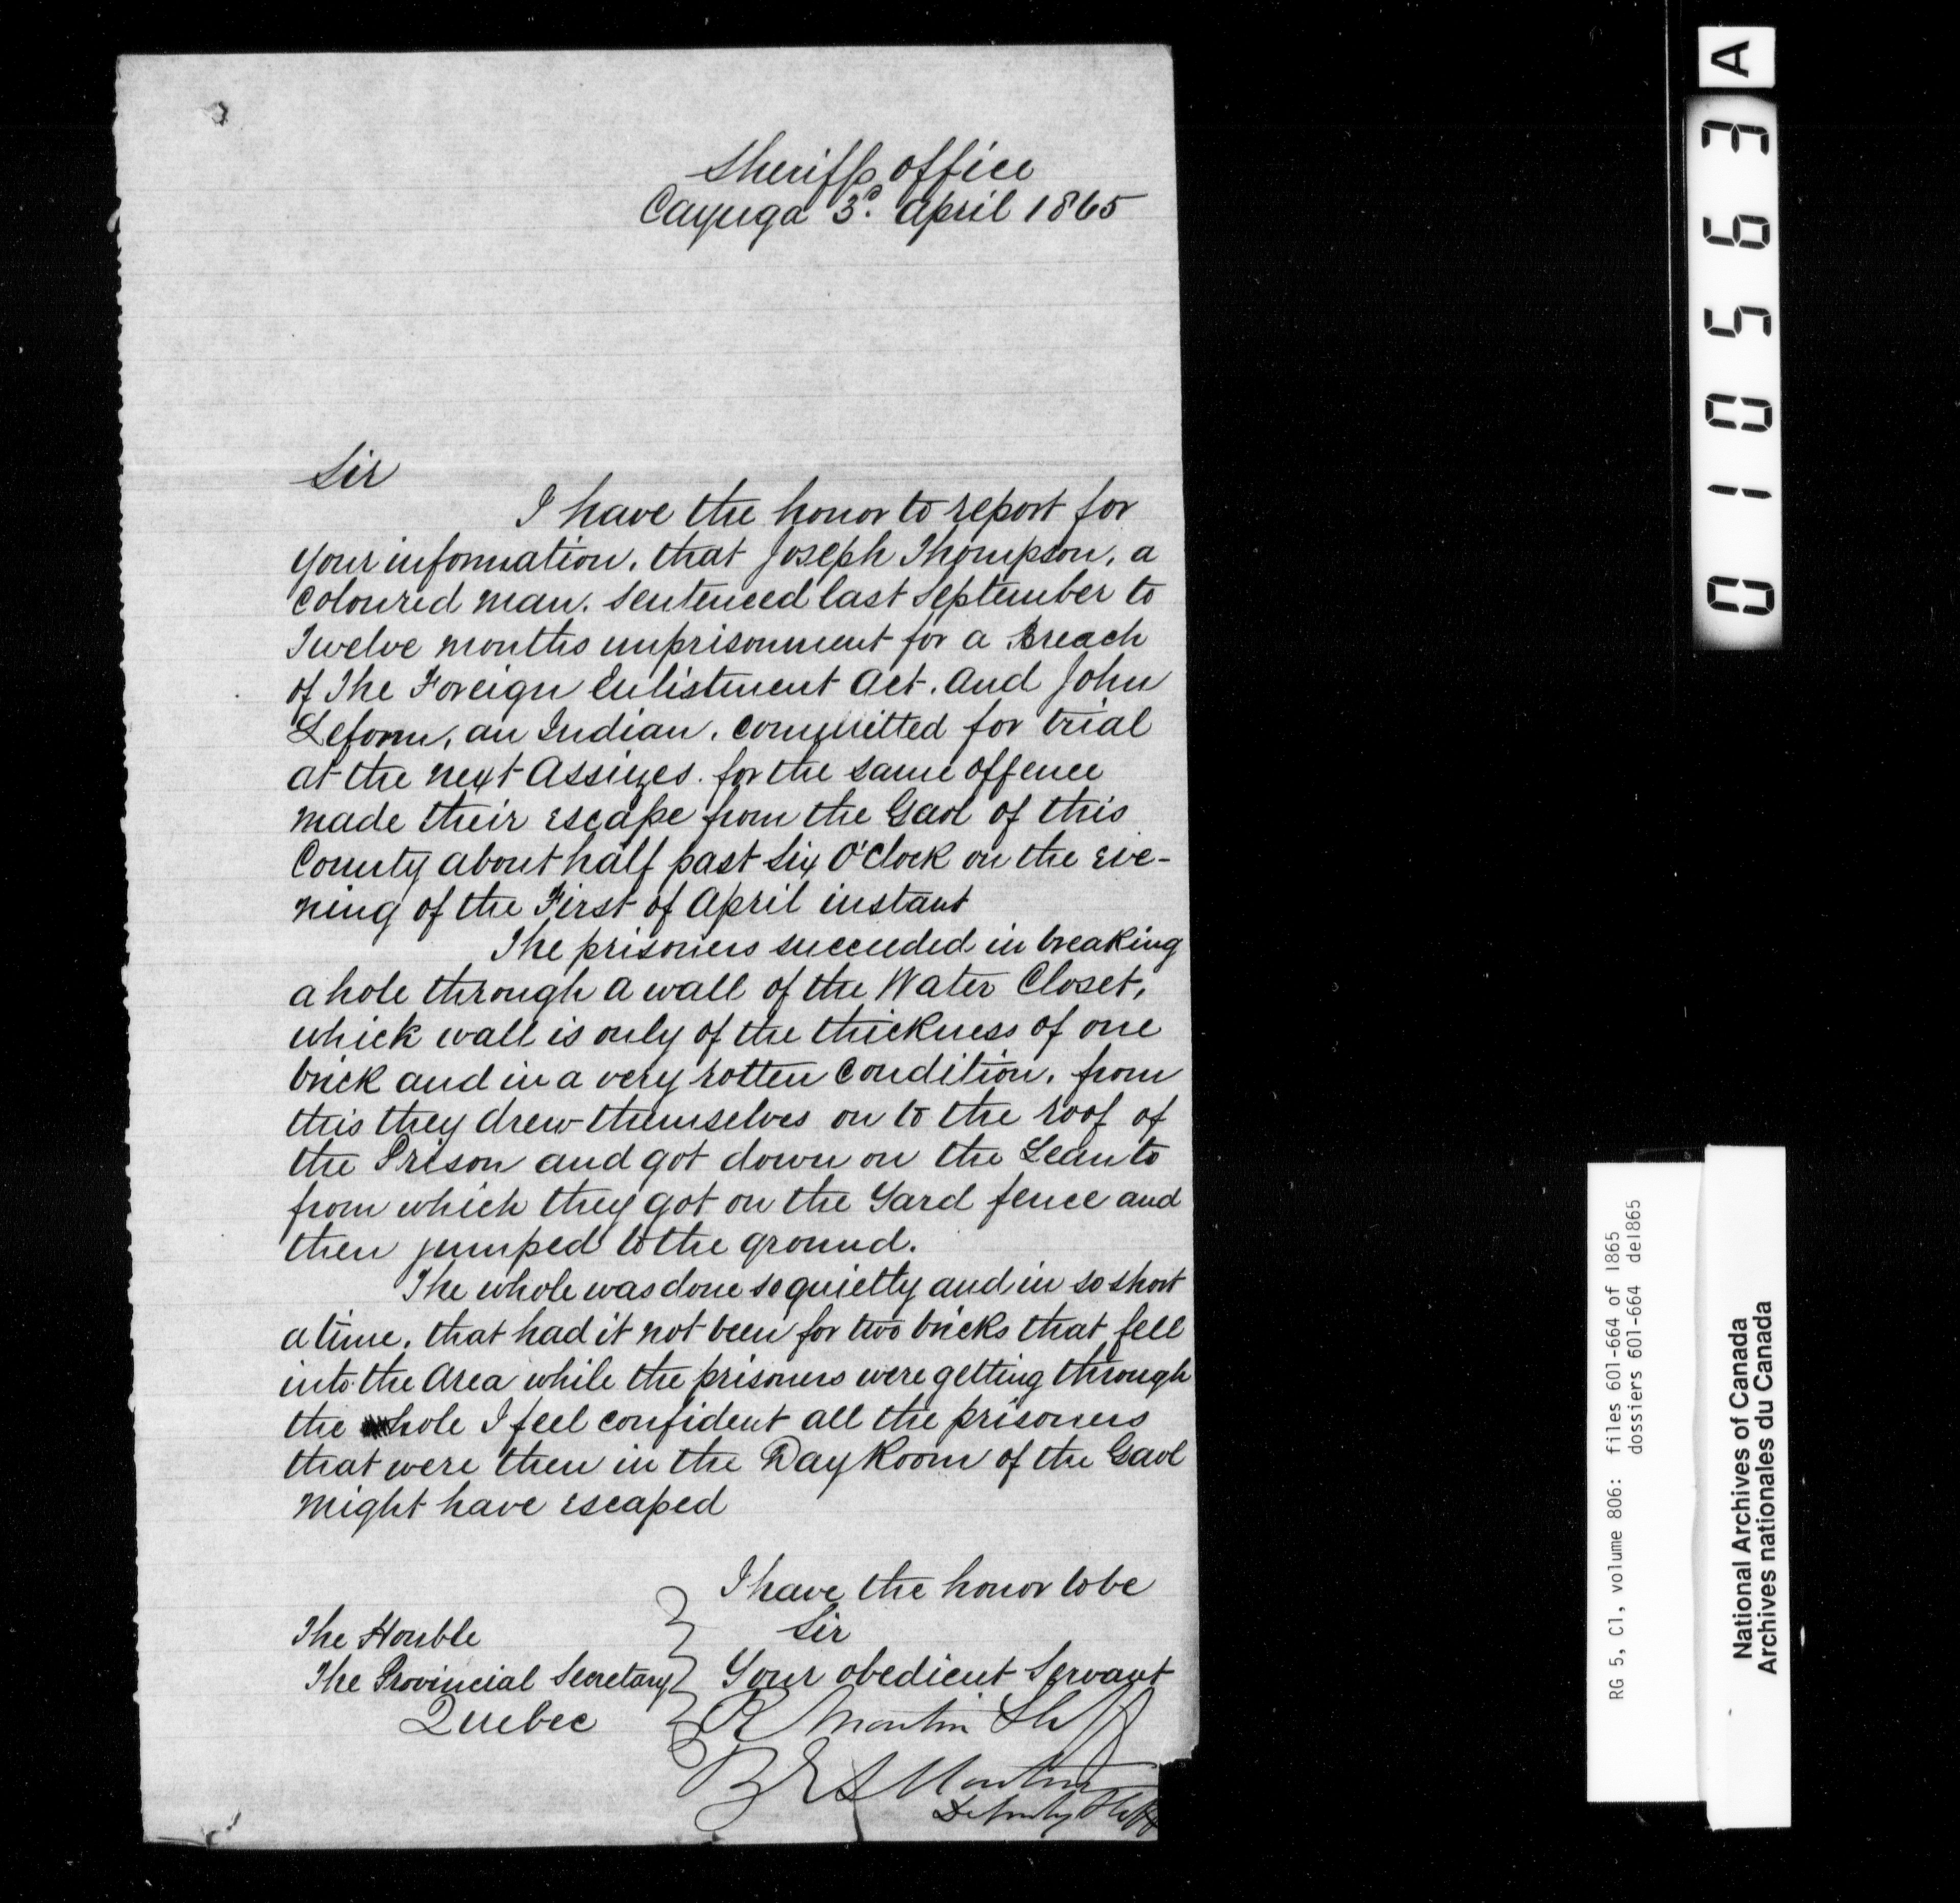 Sheriffs office
Cayuga 3d. April 1865
Sir
I have the honor to report for
your information, that Joseph Thompson, a
coloured man, sentenced last September to
Twelve months imprisonment for a Breach
of The Foreign Enlistment Act. And John
Leform, an Indian, committed for trial
at the next Assizes for the same offence
made their escape from the Gaol of this
County about half past Six O'Clock on the eve-
ning of the First of April instant
The prisoners succeeded in breaking
a hole through a wall of the Water Closet,
which wall is only of the thickness of one
brick and in a very rotten condition, from
this they drew themselves on to the roof of
the Prison and got down on the Lean to
from which they got on the Yard fence and
then jumped to the ground.
The whole was done so quietly and in so short
a time, that had it not been for two bricks that fell
into the Area while the prisoners were getting through
the hole I feel confident all the prisoners
that were then in the Day Room of the Gaol
might have escaped
I have the honor to be
Sir
Your obedient Servant
R Martin Shff
Martin
Deputy Shff
The Honble
The Provincial Secretary
Quebec
A
010563
RG 5, C1, volume 806: files 601-664 of 1865
dossiers 601-664 de1865
National Archives of Canada
Archives nationales du Canada